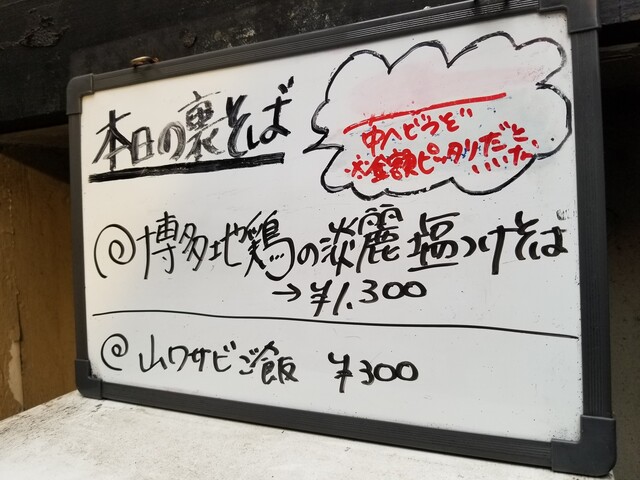 本日の裏そば
中へどうぞ
※金額ピッタリだと
いいな
@博多地鶏の淡麗塩つけそば
→¥1,300
@山ワサビご飯 ¥300